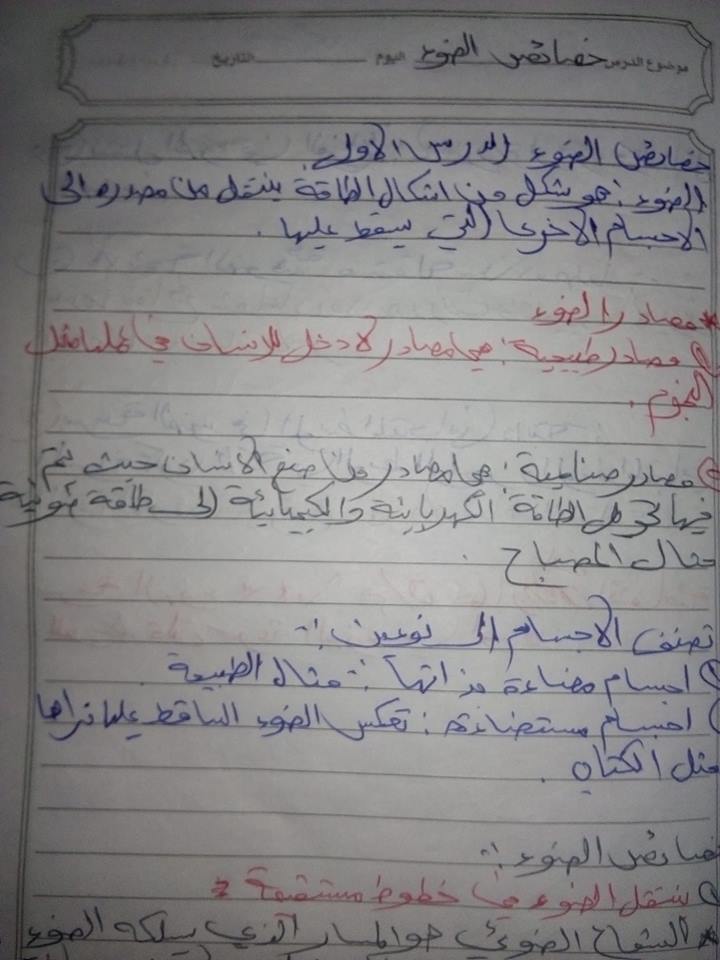 موضوع الدرس خصائص الضوء اليوم التاريخ
خصائص الضوء الدرس الاول
الضوء : هو شكل من اشكال الطاقة ينتقل من مصدره الى
الاجسام الاخرى التي يسقط عليها .
* مصادر الضوء
مصادر طبيعية : هي مصادر لا دخل للانسان في مثل
النجوم .
مصادر صناعية : هي مصادر من صنع الانسان حيث يتم
فيها تحويل الطاقة الكهربائية والكيميائية الى طاقة ضوئية
مثال المصباح .
تصنف الاجسام الى نوعين :-
اجسام مضاءة بذاتها :- مثال الطبيعة .
اجسام مستضاءة : تعكس الضوء الساقط عليها نراها
مثل الكتاب .
خصائص الضوء :-
ينتقل الضوء في خطوط مستقيمة :
* الشعاع الضوئي هو المسار الذي يسلكه الضوء